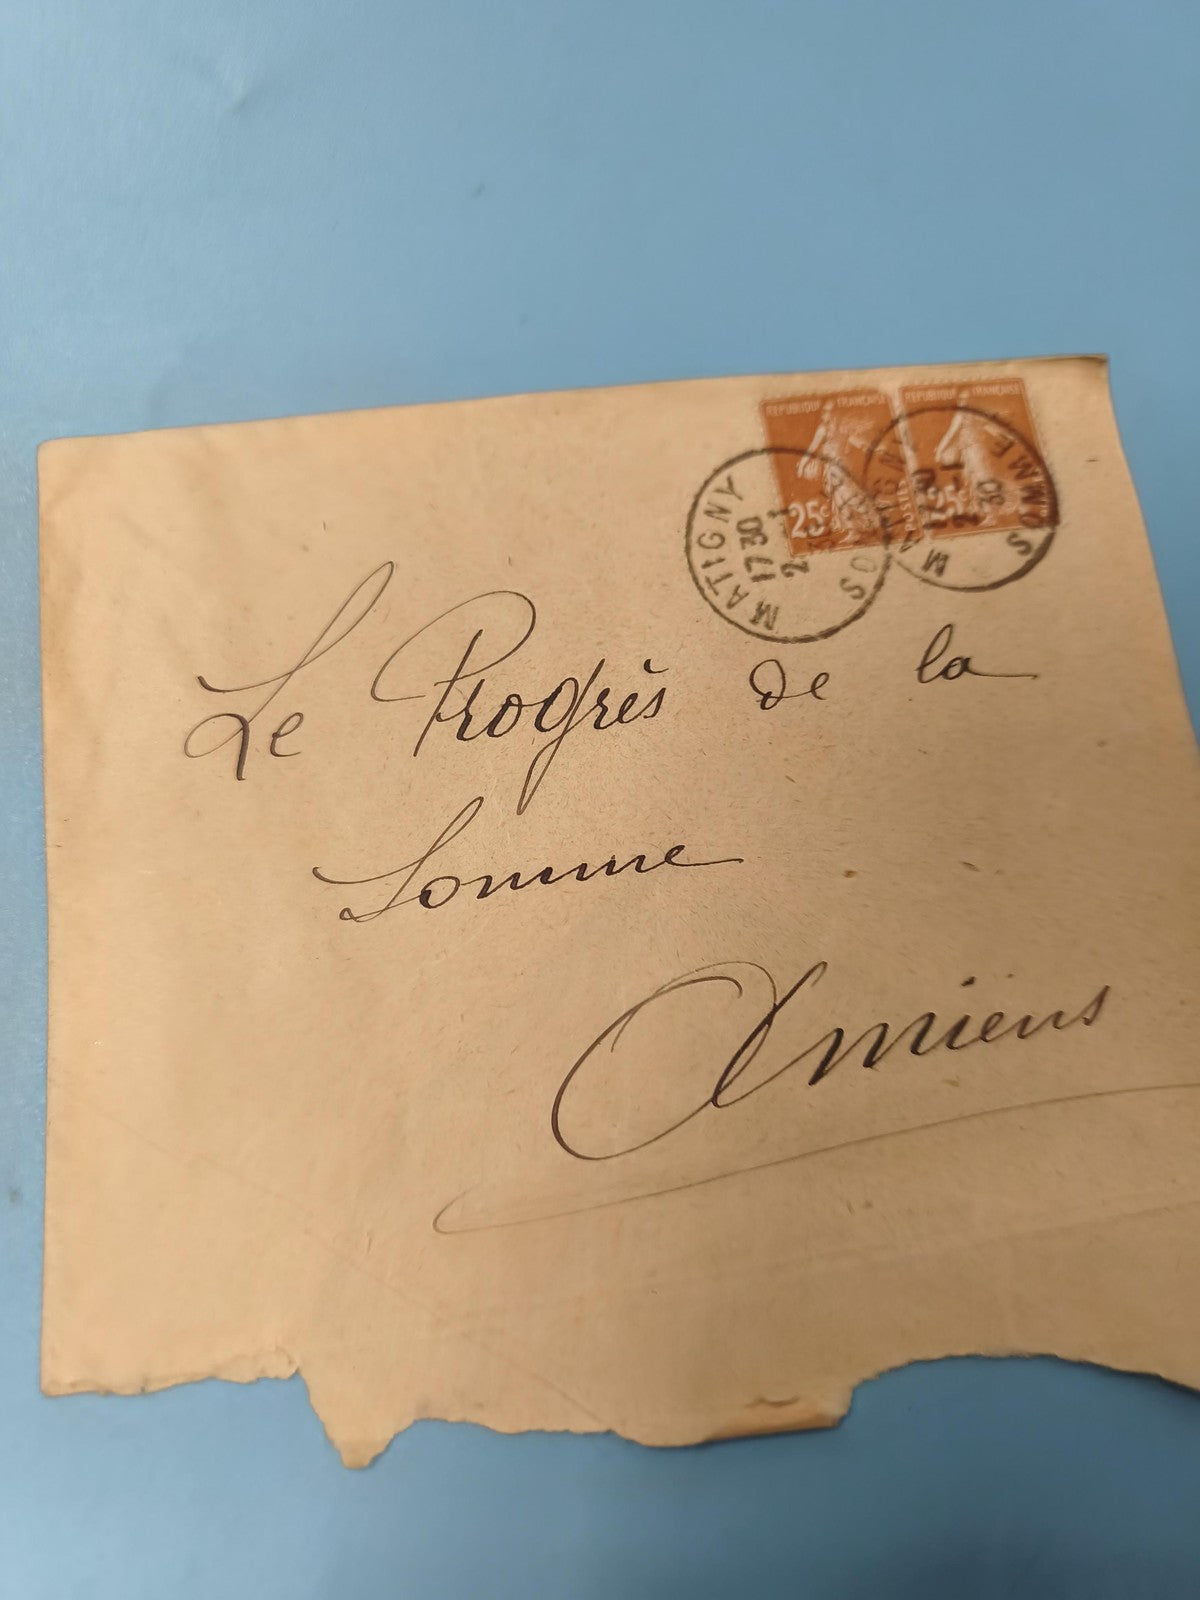 REPUBLIQUE FRANÇAISE
REPUBLIQUE FRANÇAISE
25c
25c
POSTES
MATIGNY
17 30
2 -1
30
SOMME
17 30
2 -1
30
SOMME
Le Progrès de la
Somme
Amiens